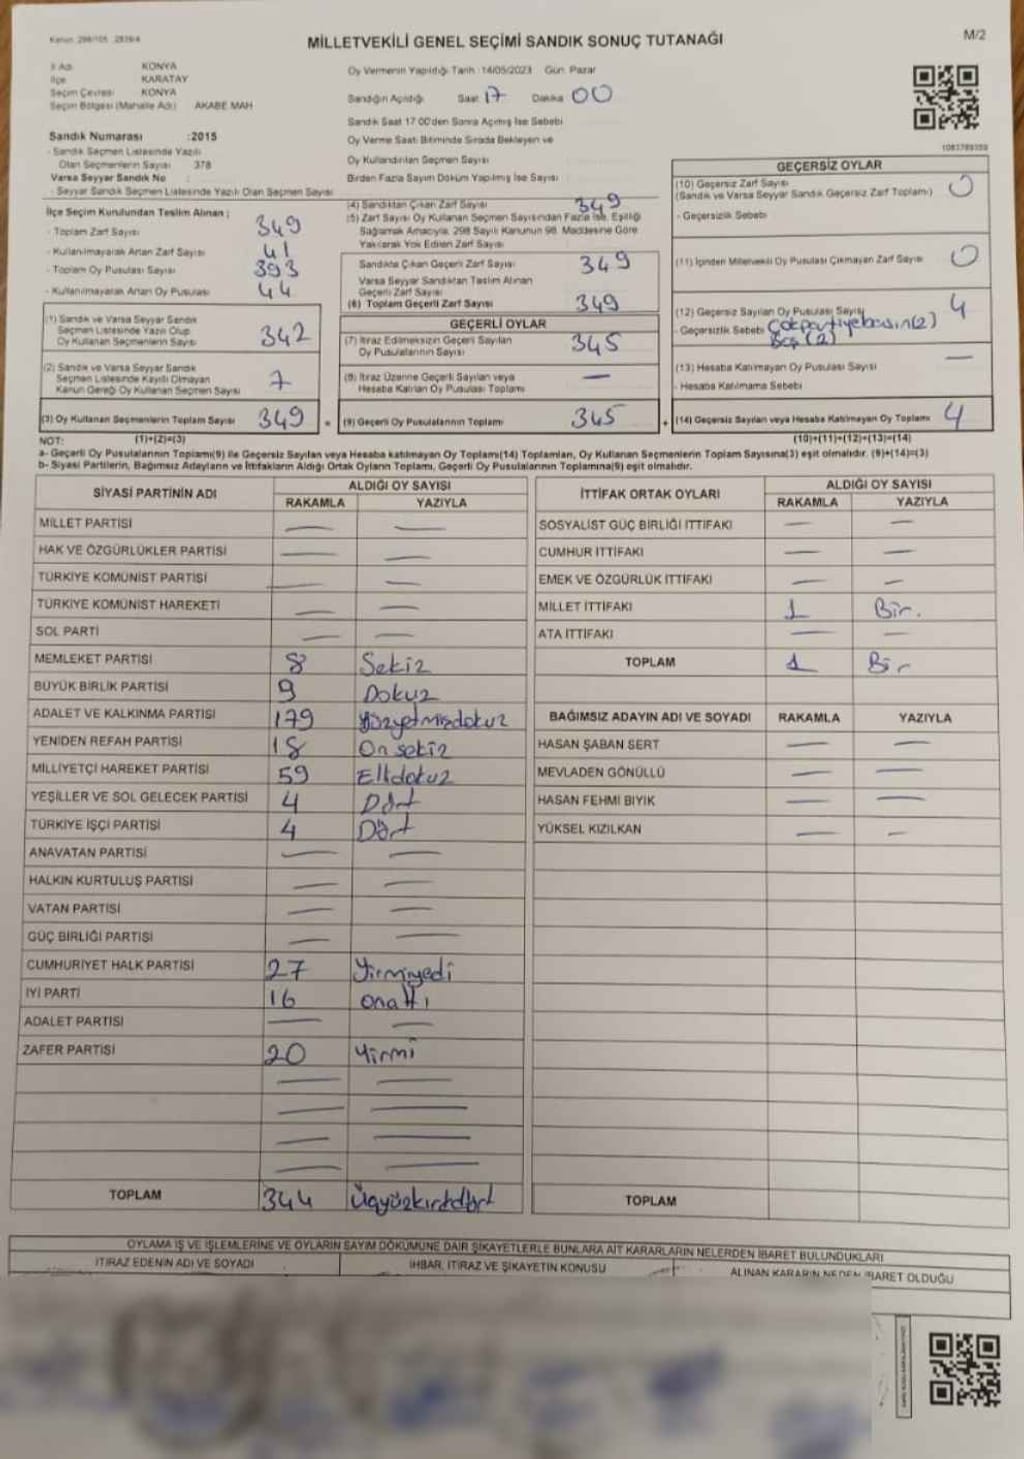 Kanun: 298/105 2839/4
MİLLETVEKİLİ GENEL SEÇİMİ SANDIK SONUÇ TUTANAĞI
M/2
İl Adı KONYA
İlçe KARATAY
Seçim Çevresi KONYA
Seçim Bölgesi (Mahalle Adı) AKABE MAH
Oy Vermenin Yapıldığı Tarih :14/05/2023 Gün: Pazar
Sandığın Açıldığı Saat 17 Dakika 00
Sandık Saat 17:00'den Sonra Açılmış İse Sebebi
Oy Verme Saati Bitiminde Sırada Bekleyen ve
Oy Kullandırılan Seçmen Sayısı
Birden Fazla Sayım Döküm Yapılmış İse Sayısı
Sandık Numarası :2015
- Sandık Seçmen Listesinde Yazılı
Olan Seçmenlerin Sayısı 378
Varsa Seyyar Sandık No :
- Seyyar Sandık Seçmen Listesinde Yazılı Olan Seçmen Sayısı
İlçe Seçim Kurulundan Teslim Alınan ;
- Toplam Zarf Sayısı 349
- Kullanılmayarak Artan Zarf Sayısı 41
- Toplam Oy Pusulası Sayısı 393
- Kullanılmayarak Artan Oy Pusulası 44
(1) Sandık ve Varsa Seyyar Sandık
Seçmen Listesinde Yazılı Olup
Oy Kullanan Seçmenlerin Sayısı 342
(2) Sandık ve Varsa Seyyar Sandık
Seçmen Listesinde Kayıtlı Olmayan
Kanun Gereği Oy Kullanan Seçmen Sayısı 7
(3) Oy Kullanan Seçmenlerin Toplam Sayısı 349 =
(1)+(2)=(3)
(4) Sandıktan Çıkan Zarf Sayısı 349
(5) Zarf Sayısı Oy Kullanan Seçmen Sayısından Fazla İse, Eşitliği
Sağlamak Amacıyla, 298 Sayılı Kanunun 98. Maddesine Göre
Yakılarak Yok Edilen Zarf Sayısı
Sandıkta Çıkan Geçerli Zarf Sayısı 349
Varsa Seyyar Sandıktan Teslim Alınan
Geçerli Zarf Sayısı
(6) Toplam Geçerli Zarf Sayısı 349
GEÇERLİ OYLAR
(7) İtiraz Edilmeksizin Geçerli Sayılan
Oy Pusulalarının Sayısı 345
(8) İtiraz Üzerine Geçerli Sayılan veya
Hesaba Katılan Oy Pusulası Toplamı —
(9) Geçerli Oy Pusulalarının Toplamı 345 +
GEÇERSİZ OYLAR
(10) Geçersiz Zarf Sayısı 0
(Sandık ve Varsa Seyyar Sandık Geçersiz Zarf Toplamı)
- Geçersizlik Sebebi
(11) İçinden Milletvekili Oy Pusulası Çıkmayan Zarf Sayısı 0
(12) Geçersiz Sayılan Oy Pusulası Sayısı 4
- Geçersizlik Sebebi Çok partiye basın (2)
Boş (2)
(13) Hesaba Katılmayan Oy Pusulası Sayısı —
- Hesaba Katılmama Sebebi
(14) Geçersiz Sayılan veya Hesaba Katılmayan Oy Toplamı 4
(10)+(11)+(12)+(13)=(14)
NOT:
a- Geçerli Oy Pusulalarının Toplamı(9) ile Geçersiz Sayılan veya Hesaba katılmayan Oy Toplamı(14) Toplamları, Oy Kullanan Seçmenlerin Toplam Sayısına(3) eşit olmalıdır. (9)+(14)=(3)
b- Siyasi Partilerin, Bağımsız Adayların ve İttifakların Aldığı Ortak Oyların Toplamı, Geçerli Oy Pusulalarının Toplamına(9) eşit olmalıdır.
SİYASİ PARTİNİN ADI ALDIĞI OY SAYISI
RAKAMLA YAZIYLA
MİLLET PARTİSİ — —
HAK VE ÖZGÜRLÜKLER PARTİSİ — —
TÜRKİYE KOMÜNİST PARTİSİ — —
TÜRKİYE KOMÜNİST HAREKETİ — —
SOL PARTİ — —
MEMLEKET PARTİSİ 8 Sekiz
BÜYÜK BİRLİK PARTİSİ 9 Dokuz
ADALET VE KALKINMA PARTİSİ 179 Yüzyetmişdokuz
YENİDEN REFAH PARTİSİ 18 On sekiz
MİLLİYETÇİ HAREKET PARTİSİ 59 Ellidokuz
YEŞİLLER VE SOL GELECEK PARTİSİ 4 Dört
TÜRKİYE İŞÇİ PARTİSİ 4 Dört
ANAVATAN PARTİSİ — —
HALKIN KURTULUŞ PARTİSİ — —
VATAN PARTİSİ — —
GÜÇ BİRLİĞİ PARTİSİ — —
CUMHURİYET HALK PARTİSİ 27 Yirmiyedi
İYİ PARTİ 16 onaltı
ADALET PARTİSİ — —
ZAFER PARTİSİ 20 Yirmi
— —
— —
— —
— —
TOPLAM 344 Üçyüzkırkdört
İTTİFAK ORTAK OYLARI ALDIĞI OY SAYISI
RAKAMLA YAZIYLA
SOSYALİST GÜÇ BİRLİĞİ İTTİFAKI — —
CUMHUR İTTİFAKI — —
EMEK VE ÖZGÜRLÜK İTTİFAKI — —
MİLLET İTTİFAKI 1 Bir.
ATA İTTİFAKI — —
TOPLAM 1 Bir
BAĞIMSIZ ADAYIN ADI VE SOYADI RAKAMLA YAZIYLA
HASAN ŞABAN SERT — —
MEVLADEN GÖNÜLLÜ — —
HASAN FEHMİ BIYIK — —
YÜKSEL KIZILKAN — —
TOPLAM
OYLAMA İŞ VE İŞLEMLERİNE VE OYLARIN SAYIM DÖKÜMÜNE DAİR ŞİKAYETLERLE BUNLARA AİT KARARLARIN NELERDEN İBARET BULUNDUKLARI
İTİRAZ EDENİN ADI VE SOYADI İHBAR, İTİRAZ VE ŞİKAYETİN KONUSU ALINAN KARARIN NEDEN İBARET OLDUĞU